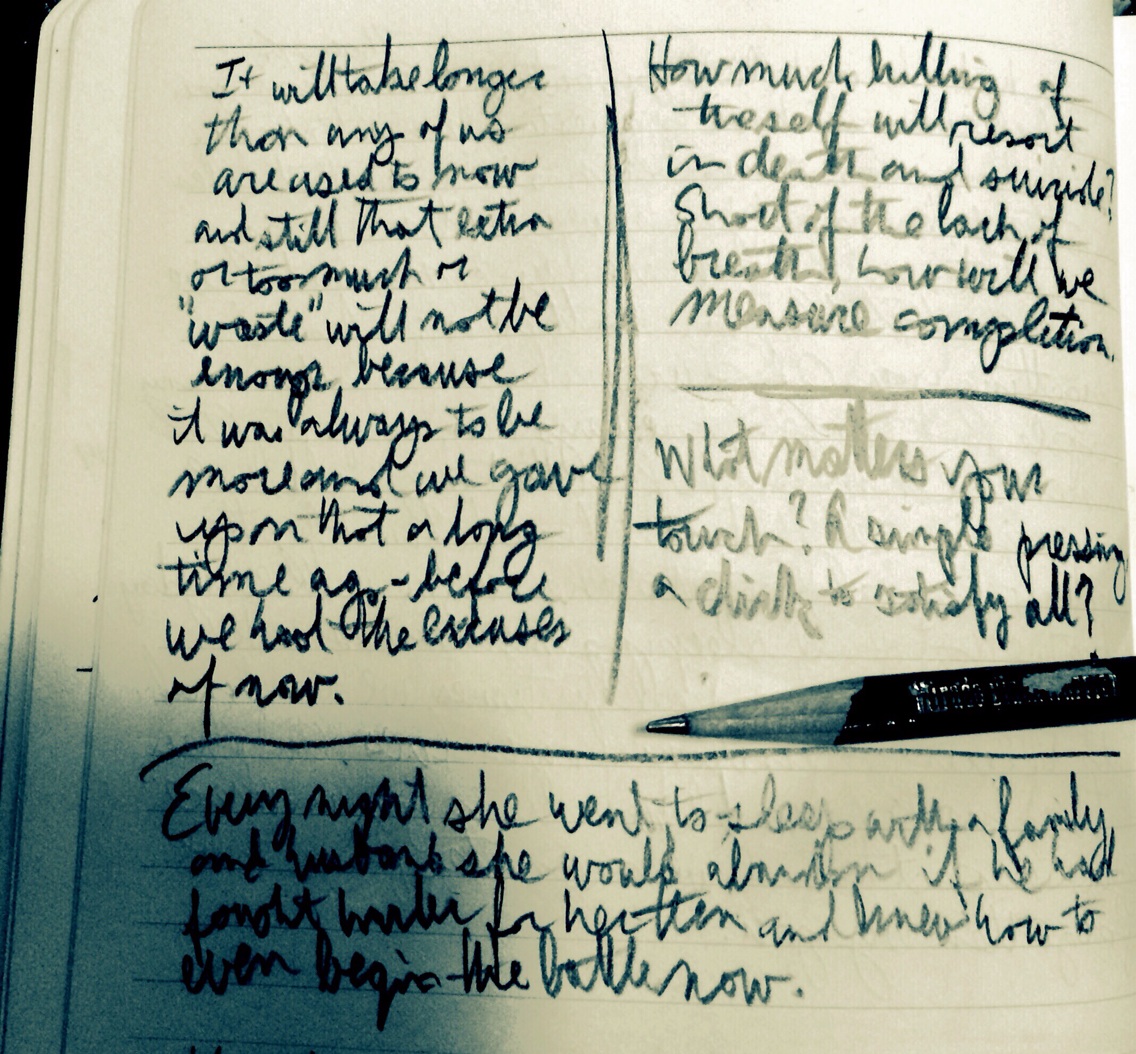 It will take longer
than any of us
are used to now
and still that extra
or too much or
"waste" will not be
enough because
it was always to be
more and we gave
upon that a long
time ago - before
we had the excuses
of now.
How much killing of
the self will resort
in death and suicide?
Short of the lack of
breath, how will we
measure completion.
What matters your
touch? A simple pressing
a click to satisfy all?
Every night she went to sleep with a family
and husband she would abandon if he had
fought harder for her then and knew how to
even begin the battle now.